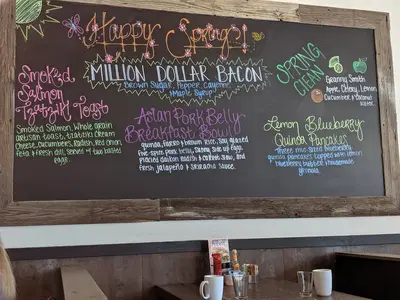 Happy Spring!
MILLION DOLLAR BACON
Brown Sugar, Pepper, Cayenne,
Maple Syrup
Smoked
Salmon
Tzatziki Toast
Smoked Salmon, whole grain
artisan toast, tzatziki cream
cheese, cucumbers, radish, red onion,
feta & fresh dill, served w/ two basted
eggs.
Asian Pork Belly
Breakfast Bowl
quinoa, brown rice, soy glazed
five-spice pork belly, sunny side up eggs,
pickled daikon radish & carrot slaw, and
fresh jalapeño & sriracha sauce.
SPRING
CLEAN
Granny Smith
Apple, Celery, Lemon
Cucumber & Coconut
Water
Lemon Blueberry
Quinoa Pancakes
Three mid-sized blueberry
quinoa pancakes topped with lemon
blueberry butter & housemade
granola.